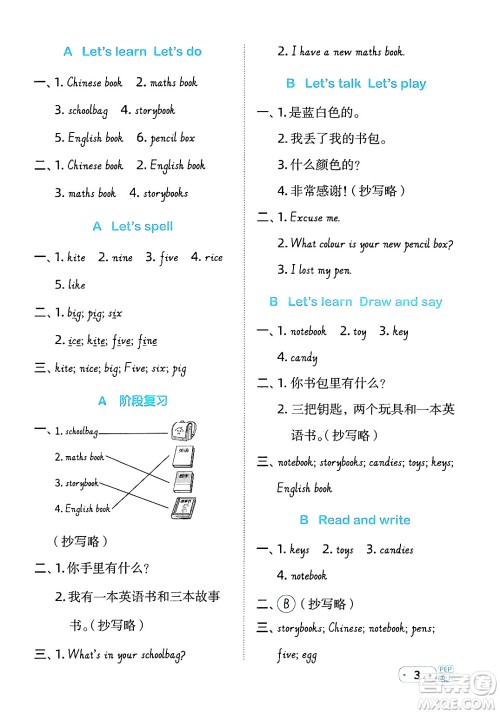 A Let's learn Let's do
一、1. Chinese book 2. maths book
3. schoolbag 4. storybook
5. English book 6. pencil box
二、1. Chinese book 2. English book
3. maths book 4. storybooks
A Let's spell
一、1. kite 2. nine 3. five 4. rice
5. like
二、1. big; pig; six
2. ice; kite; five; fine
三、kite; nice; big; Five; six; pig
A 阶段复习
一、1. schoolbag
2. maths book
3. storybook
4. English book
（抄写略）
二、1. 你手里有什么？
2. 我有一本英语书和三本故事
书。（抄写略）
三、1. What's in your schoolbag?
2. I have a new maths book.
B Let's talk Let's play
一、1. 是蓝白色的。
2. 我丢了我的书包。
3. 什么颜色的？
4. 非常感谢！（抄写略）
二、1. Excuse me.
2. What colour is your new pencil box?
3. I lost my pen.
B Let's learn Draw and say
一、1. notebook 2. toy 3. key
4. candy
二、1. 你书包里有什么？
2. 三把钥匙，两个玩具和一本英
语书。（抄写略）
三、notebook; storybooks; candies; toys; keys;
English book
B Read and write
一、1. keys 2. toys 3. candies
4. notebook
二、Ⓑ（抄写略）
三、storybooks; Chinese; notebook; pens;
five; egg
3
PEP